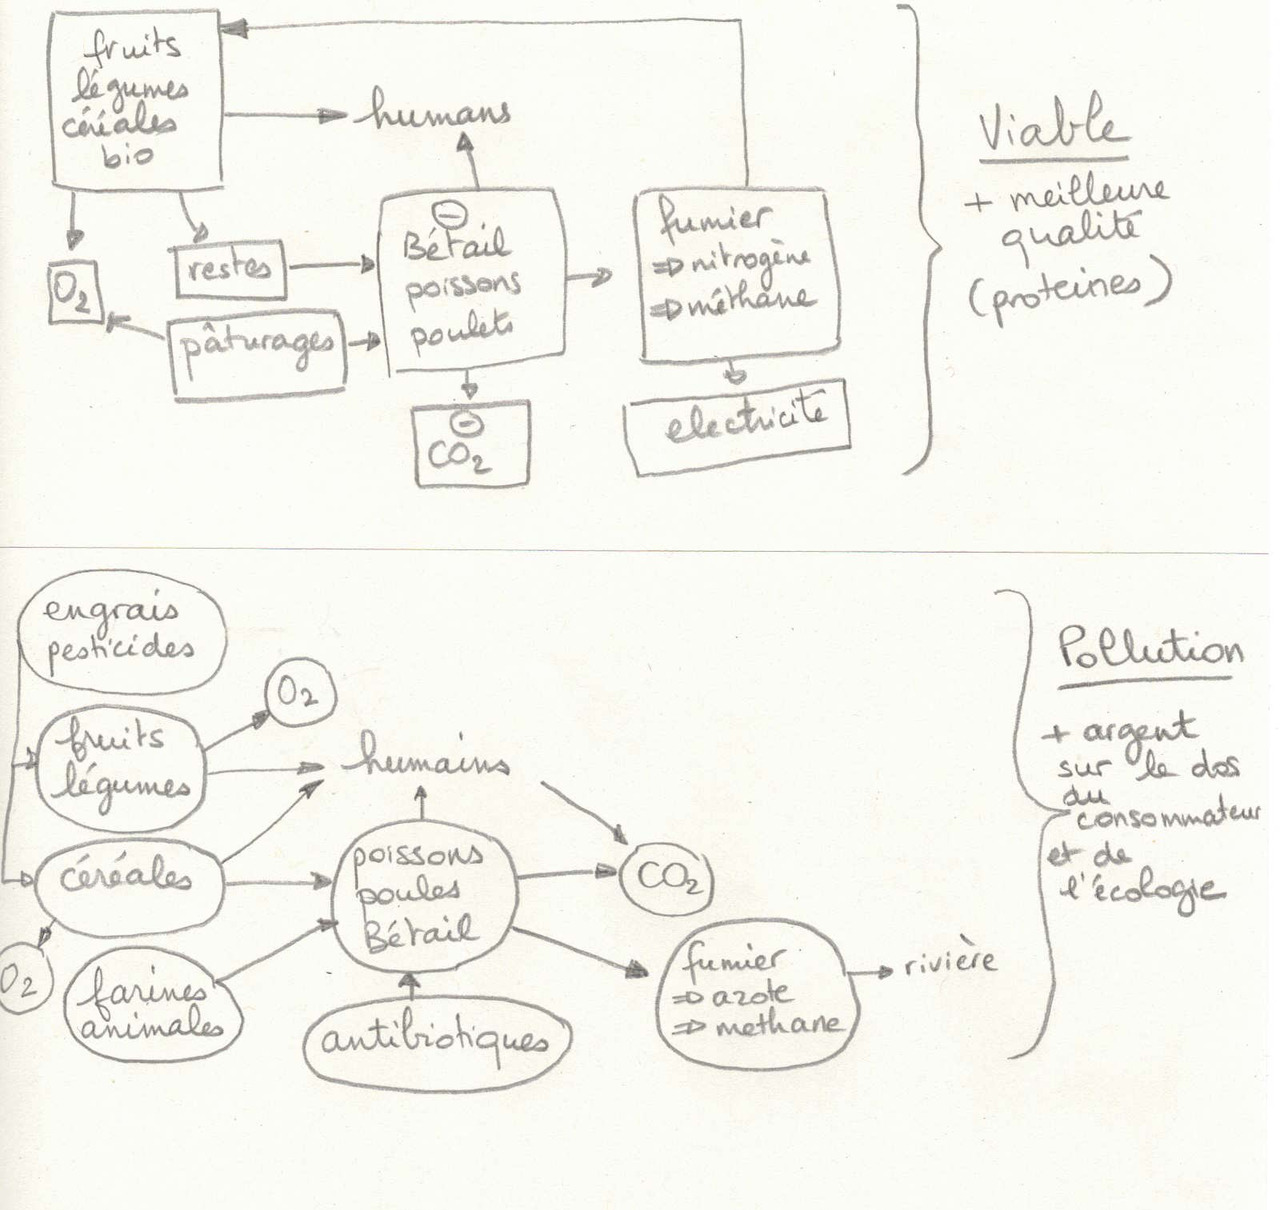 fruits
légumes
céréales
bio
humans
O2
restes
pâturages
⊖
Bétail
poissons
poulets
⊖
CO2
fumier
⇒ nitrogène
⇒ méthane
electricité
Viable
+ meilleure
qualité
(proteines)
engrais
pesticides
fruits
légumes
O2
céréales
O2
farines
animales
humains
poissons
poules
Bétail
antibiotiques
CO2
fumier
⇒ azote
⇒ methane
rivière
Pollution
+ argent
sur le dos
du
consommateur
et de
l'écologie